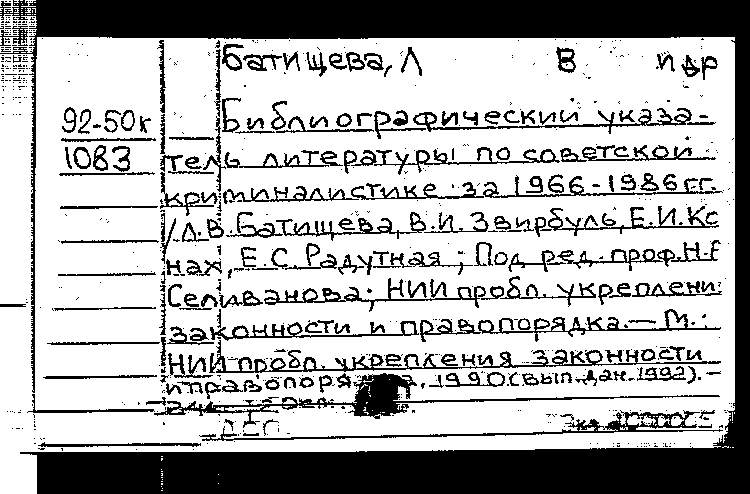 Батищева, Л В и др
92-50к Библиографический указа-
1083 тель литературы по советской
криминалистике за 1966-1986 гг.
/Л.В. Батищева, В.И. Звирбуль, Е.И. Ко
нах, Е.С. Радутная ; Под ред. проф. Н.
Селиванова; НИИ пробл. укреплени
законности и правопорядка.— М.:
НИИ пробл. укрепления законности
и правопоря , 1990 (вып. дан. 1992). –
ДСП